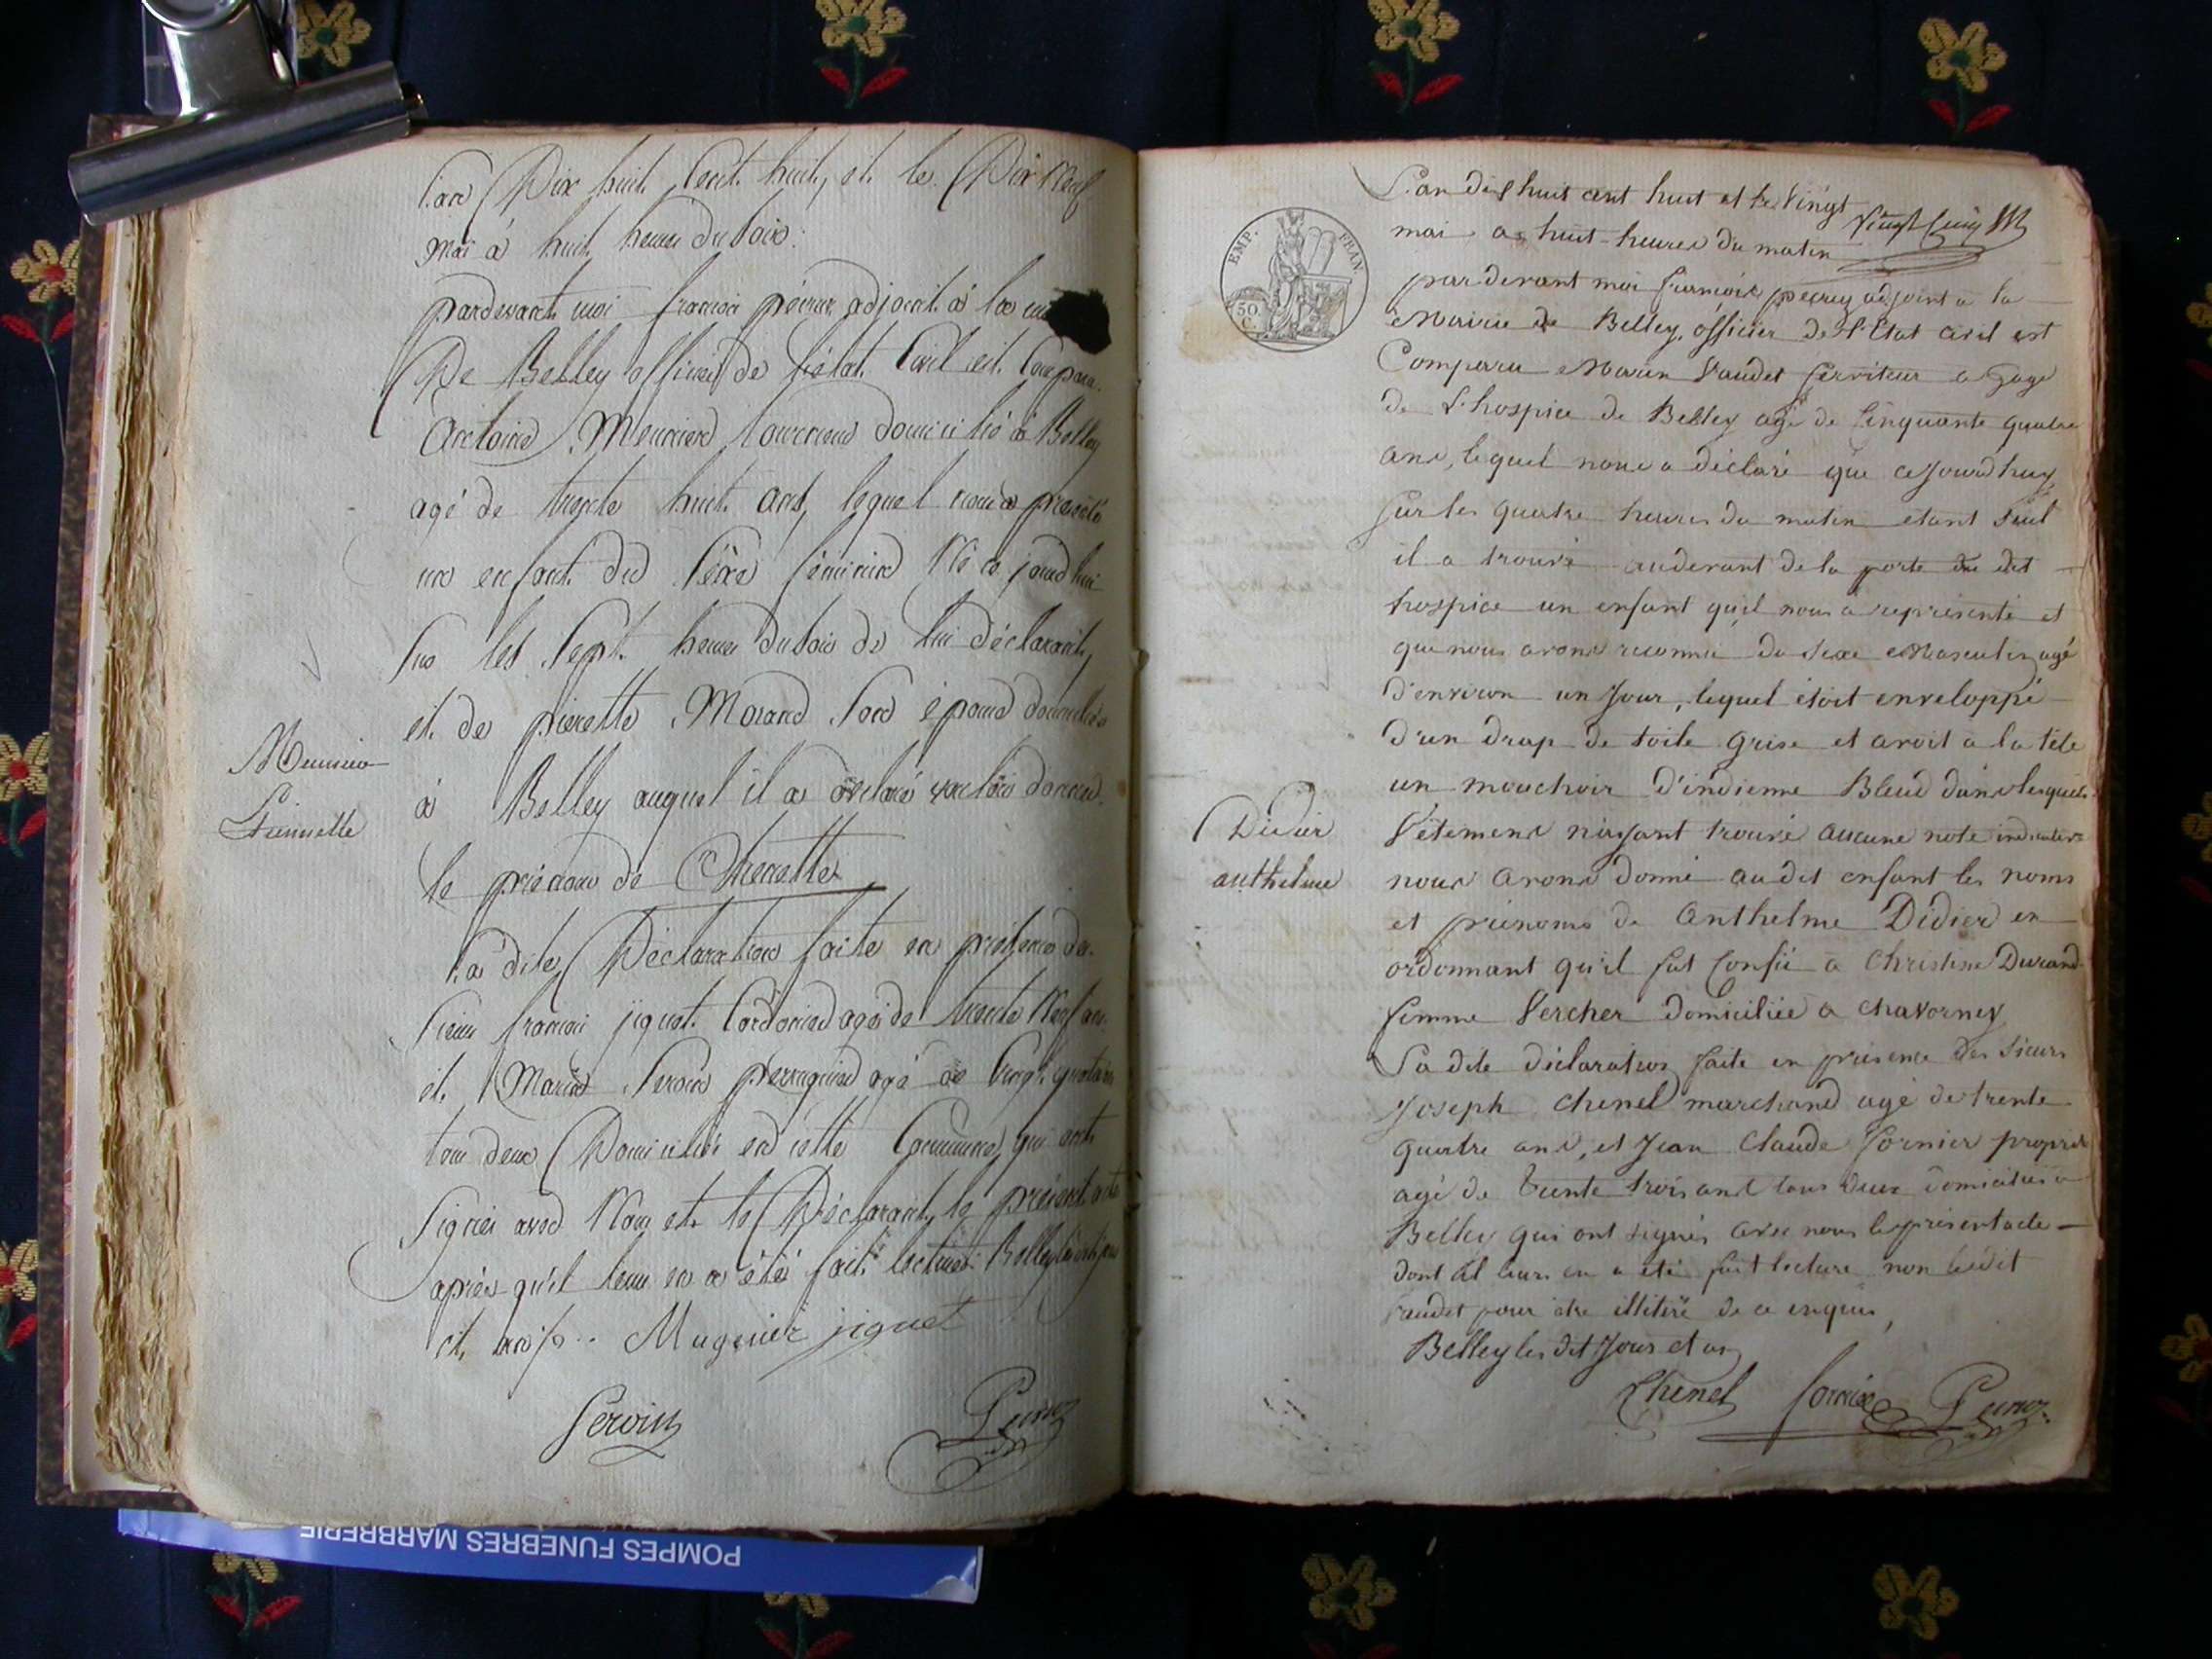 L'an Dix huit Cent huit, et le Dix Neuf
mai à huit heures du soir.
pardevant moi françois péruy adjoint à la
De Belley officier de l'état Civil est Comparu
Antoine Meunier tourneur domicilié à Belley
agé de trente huit ans, lequel nous a présenté
un enfant du sexe féminin Né ce jourd'hui
sur les sept heures du soir de lui déclarant,
et de pierette Morand son épouse domiciliés
à Belley auquel il a déclaré vouloir donner
le prénom de
La dite Déclaration faite en présence de
Sieur françois jiguet Cordonier agé de trente Neuf ans
et Marin Servin perruquier agé de Vingt quatre ans
tous deux Domiciliés en cette Commune, qui ont
signés avec Nous et le Déclarant, le présent acte
après qu'il leur en a été fait lecture. Belley les dits jour
et an
jiguet
Servin
Meunier
L'an dix huit cent huit et le Vingt
mai à huit heures du matin
par devant moi françois péruy adjoint à la
Mairie de Belley, officier de L'Etat civil est
Comparu Marin Vaudet serviteur a gage
de L'hospice de Belley agé de Cinquante quatre
ans, lequel nous a déclaré que ce Jourd'huy
sur les quatre heures du matin etant seul
il a trouvé audevant de la porte du dit
hospice un enfant qu'il nous a représenté et
que nous avons reconnu du sexe Masculin agé
d'environ un Jour, lequel étoit enveloppé
d'un drap de toile grise et avoit a la tête
un mouchoir d'indienne Bleue dans lesquels
Vêtemens n'ayant trouvé aucune note indicative
nous avons donné au dit enfant les noms
et prénoms de Anthelme Didier en
ordonnant qu'il fut Confié à Christine Durand
femme Vercher domiciliée à chavorney
La dite déclaration faite en présence des sieurs
Joseph chenel marchand agé de trente
quatre ans, et Jean Claude fornier propre
agé de trente trois ans tous deux domiciliés à
Belley qui ont signés avec nous le présent acte
dont il leurs en a été fait lecture non ledit
Vaudet pour être illitéré de ce enquis,
Belley les dit Jour et an
Chenel fornier
Didier
anthelme
EMP. FRAN.
50
C.
POMPES FUNEBRES MARBRERIE